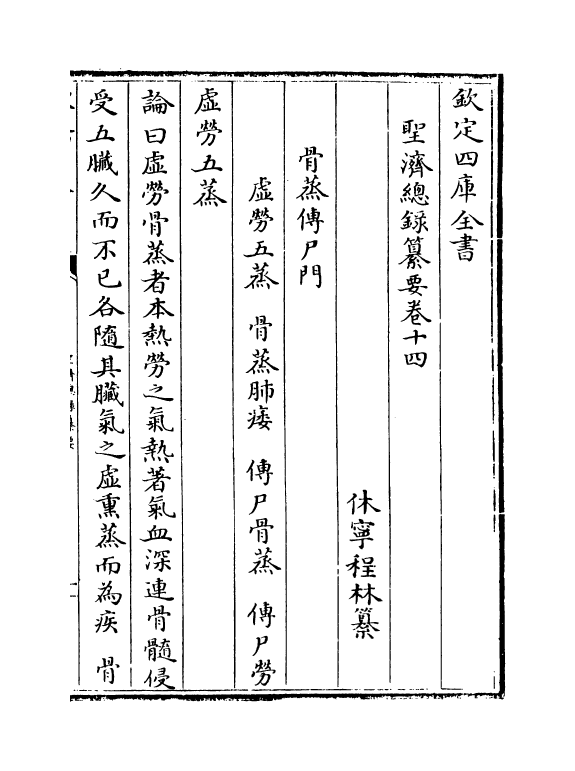 欽定四庫全書
聖濟總録纂要卷十四
休寧程林纂
骨蒸傳尸門
虚勞五蒸 骨蒸肺痿 傳尸骨蒸 傳尸勞
虚勞五蒸
論曰虚勞骨蒸者本熱勞之氣熱著氣血深連骨髓侵
受五臟久而不已各隨其臟氣之虚熏蒸而為疾 骨